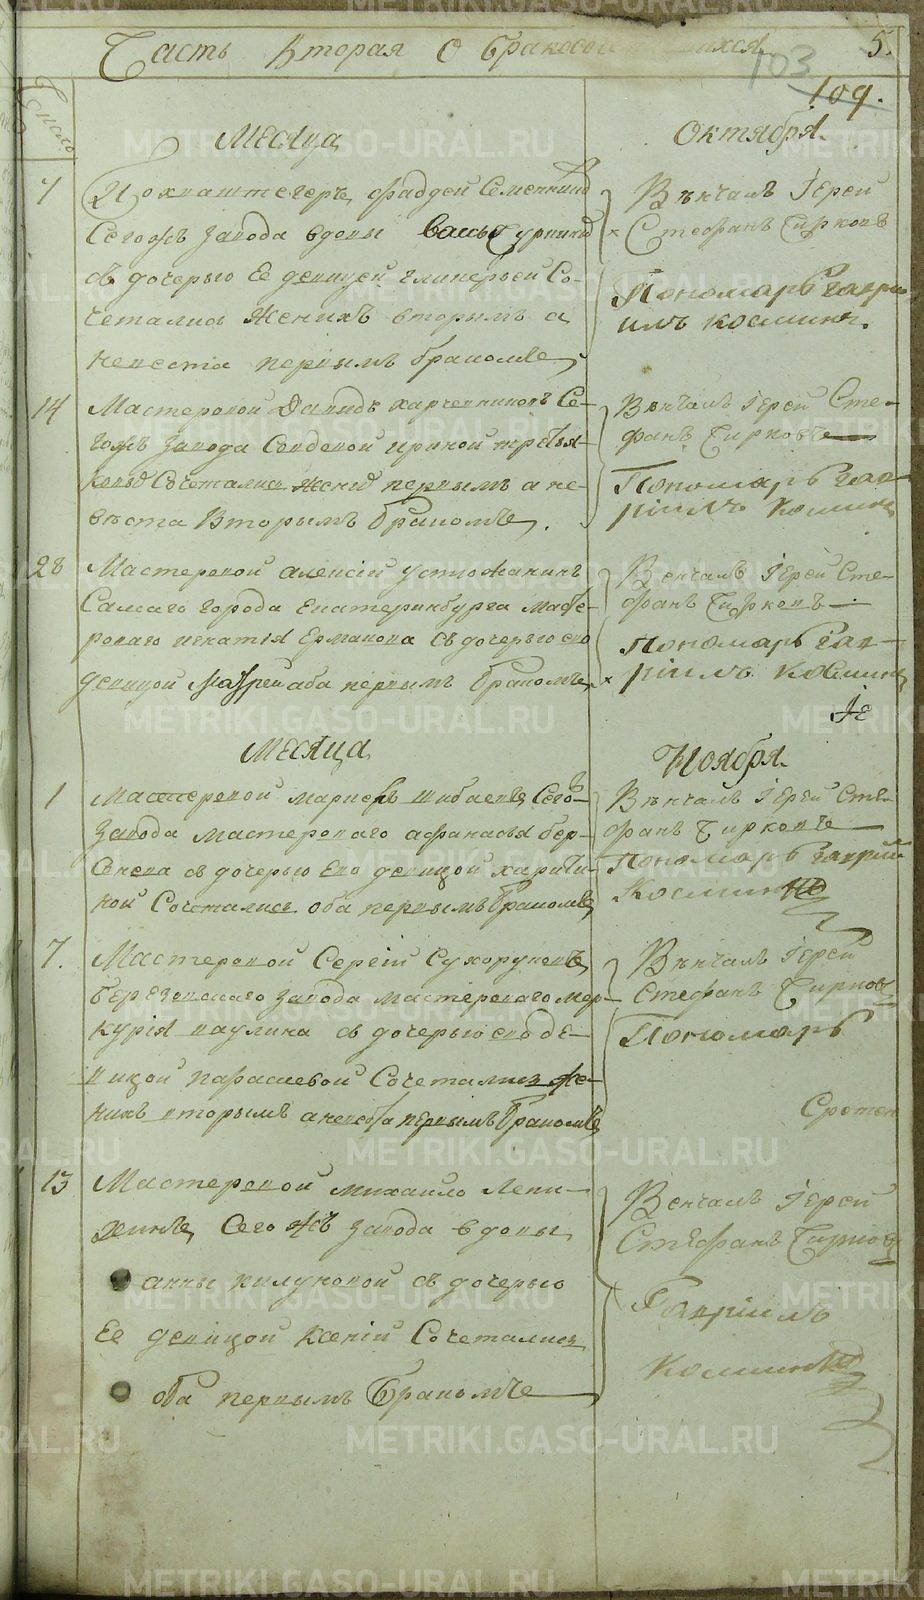 Часть Вторая О бракосо
5.
103
109.
Число
Месяца
Октября
7
фаддей Семеннинъ
Сегожъ завода вдовы
съ дочерью Ее девицей гликерьей Со-
четались Женихъ вторымъ а
невеста первымъ бракомъ
Вѣнчалъ Іерей
Стефанъ Чирковъ
Пономарь Гаври
илъ косминъ.
14
Мастеровой Давидъ харченниковъ Се-
гожъ завода Сольдовой ириной третья-
Сочетались Жених первымъ а не-
вѣста Вторымъ бракомъ.
Вѣнчалъ Іерей Сте-
фанъ Чирковъ
Пономарь Гав-
ріилъ Косминъ
28
Мастеровой алексій устюжанинъ
Самаго города Екатеринбурга Масте-
роваго игнатія Ермакова съ дочерью ево
девицой Маврой аба первымъ бракомъ
Венчалъ Іерей Сте-
фанъ Чирковъ
Пономарь Гав-
ріилъ Косминъ
Іе
Месяца
Ноября
1
Мастеровой шибаевъ Сего-
Завода мастероваго афанасья бер-
Сенева съ дочерью Ево девицой харити-
ной Сочетались оба первымъ бракомъ
Вѣнчалъ Іерей Сте-
фанъ Чирковъ
Пономарь гаврііл
Косминъ
7.
Мастеровой Сергій Сухоруковъ
березовскаго завода мастероваго мер-
курія паулина съ дочерью ево де-
вицой парасковой Сочетались же-
нихъ вторымъ а невеста первымъ бракомъ
Вѣнчалъ Іерей
Стефанъ Чирковъ
Пономарь
Сретен
13
Мастеровой михайло Лепи-
хинъ Сегожъ завода вдовы
анны пилуновой съ дочерью
Ее девицой ксеніи Сочетались
оба первымъ бракомъ
Венчалъ Іерей
Стефанъ Чирковъ
Гавріилъ
Косминъ
METRIKI.GASO-URAL.RU